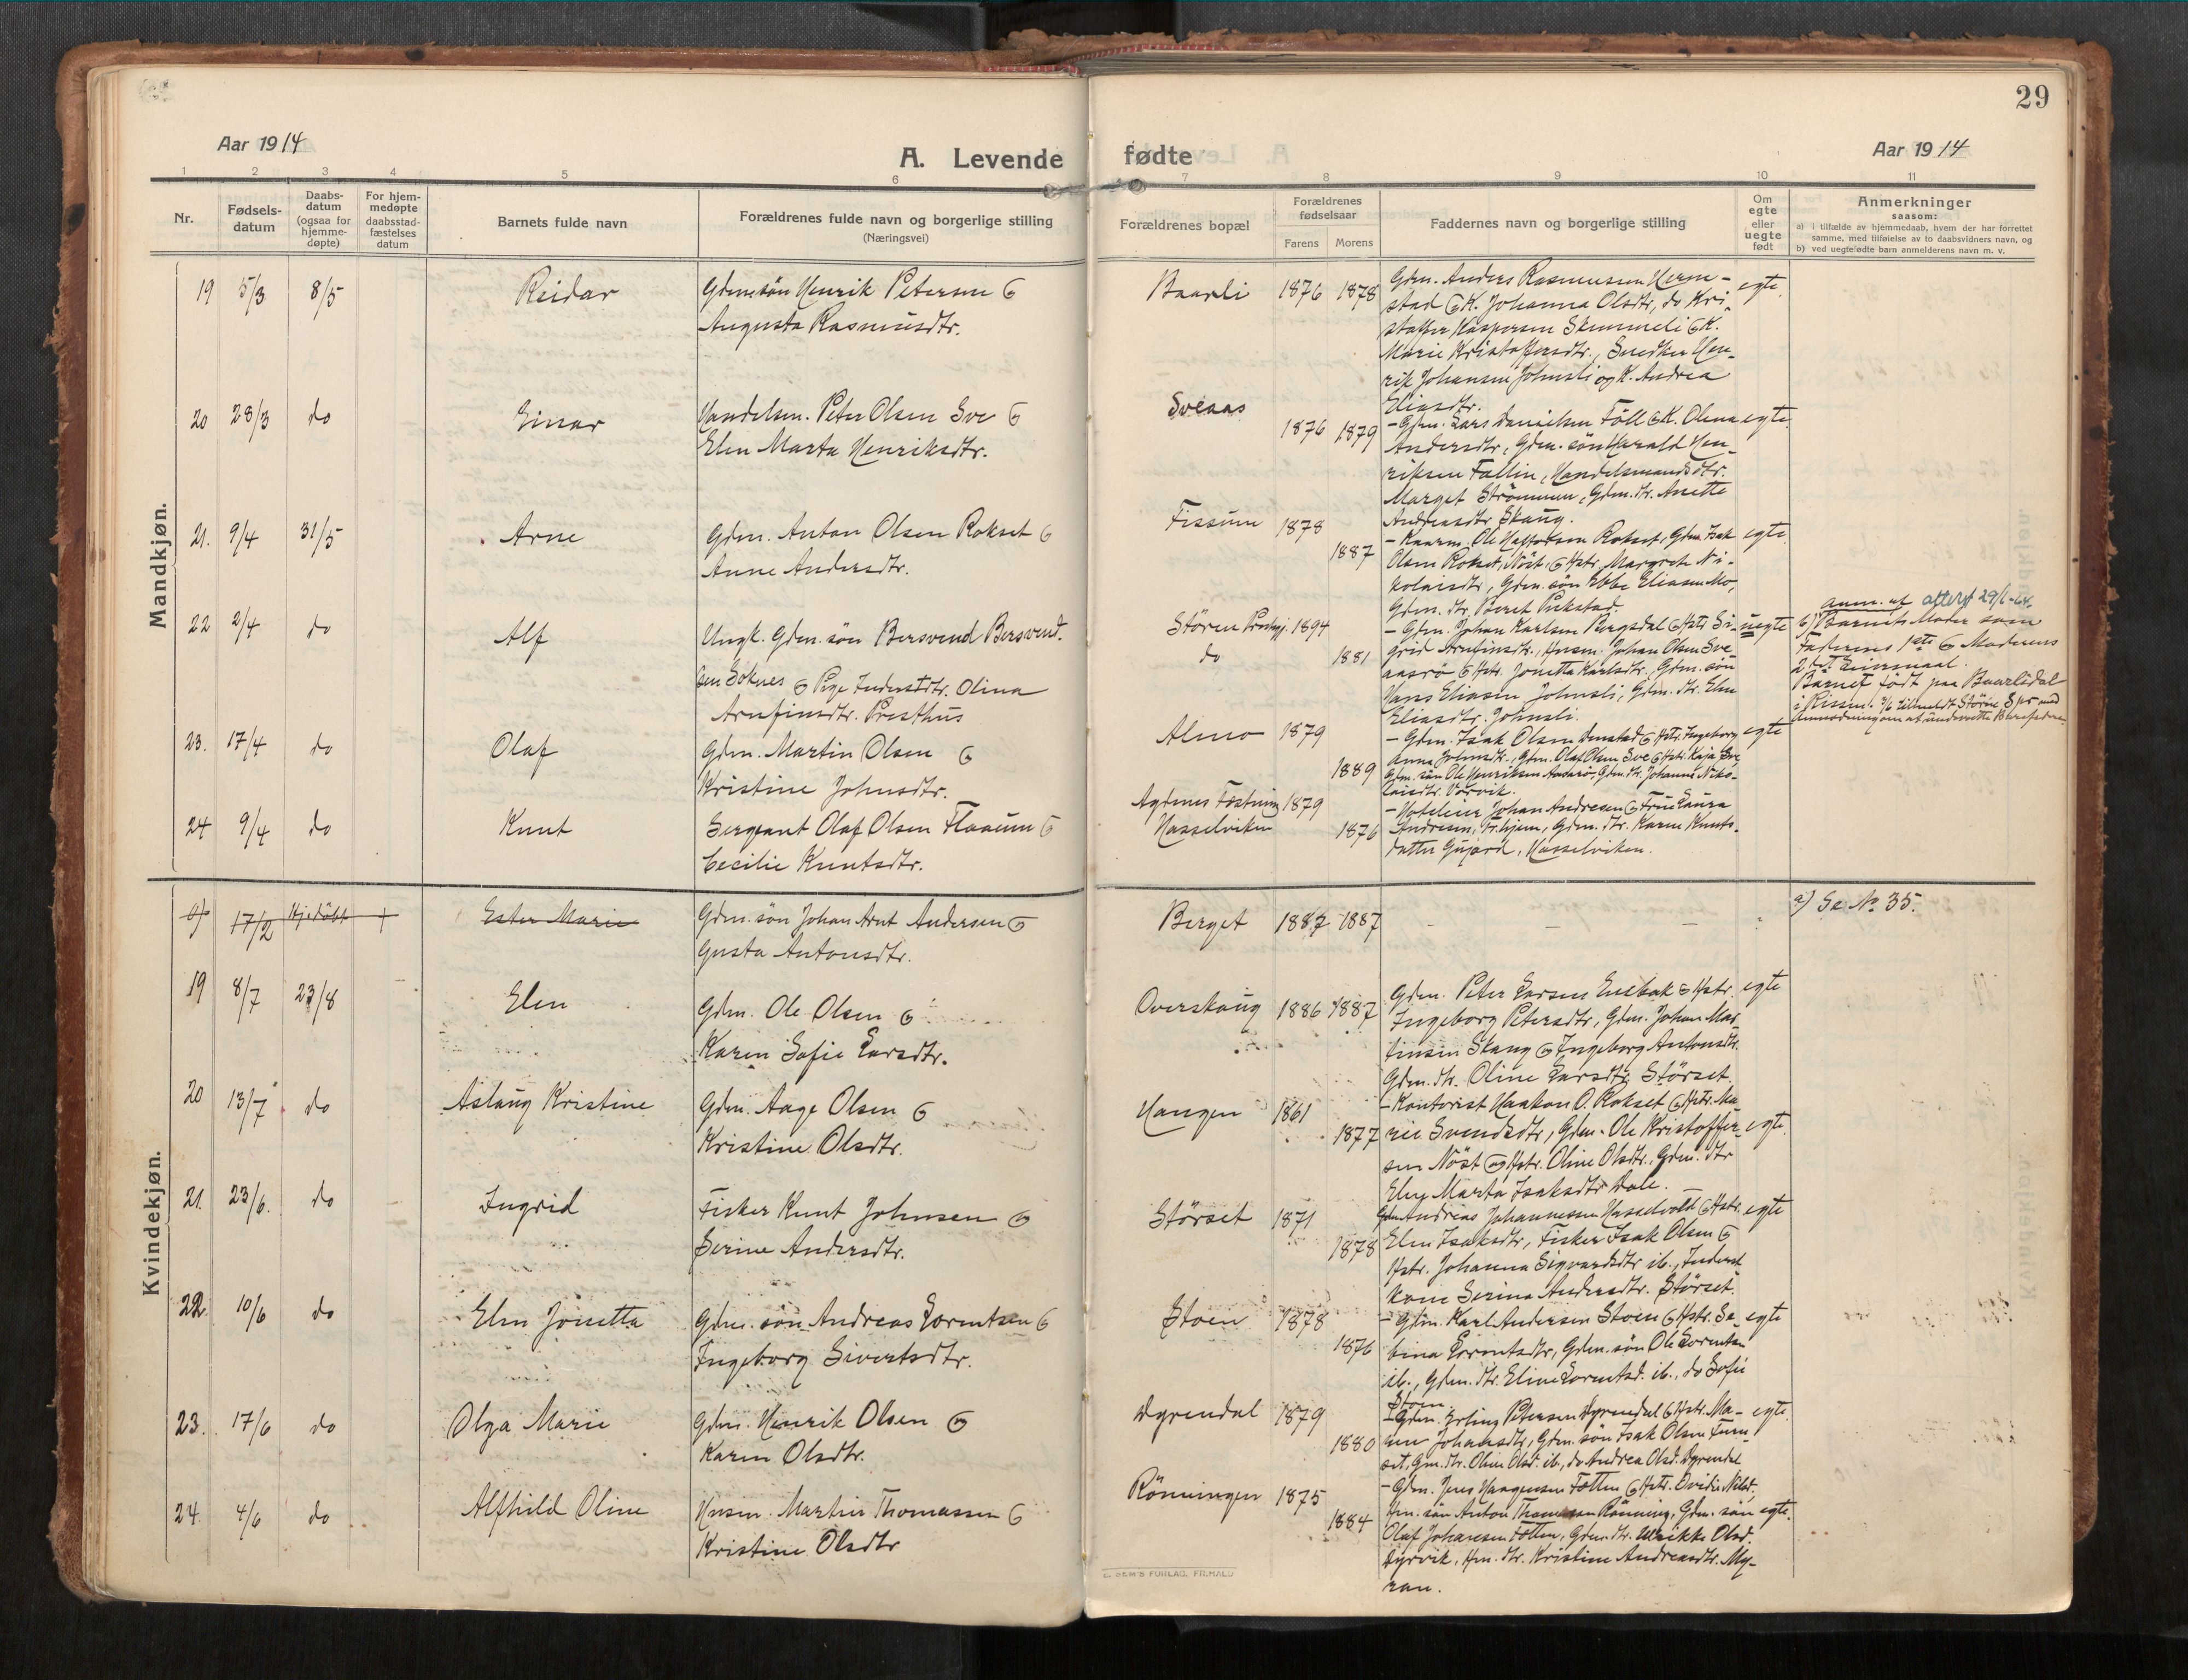 29
Aar 1914
A. Levende fødte
Aar 1914
1 2 3 4 5 6 7 8 9 10 11
Nr.
Fødsels-
datum
Daabs-
datum
(ogsaa for
hjemme-
døpte)
For hjem-
medøpte
daabsstad-
fæstelses
datum
Barnets fulde navn
Forældrenes fulde navn og borgerlige stilling
(Næringsvei)
Forældrenes bopæl
Forældrenes
fødselsaar
Farens Morens
Faddernes navn og borgerlige stilling
Om
egte
eller
uegte
født
Anmerkninger
saasom:
a) i tilfælde av hjemmedaab, hvem der har forrettet
samme, med tilføielse av to daabsvidners navn, og
b) ved uegte fødte barn anmelderens navn m. v.
Mandkjøn.
19 5/3 8/5 Reidar
Gdmsøn Henrik Petersen &
Augusta Rasmusdtr.
Baarli 1876 1878
Gdm. Anders Rasmussen Herm-
stad & K. Johanna Olsdtr, do Kri-
stoffer Kaspersen Skummeli & K.
Marie Kristoffersdtr., Snedker Hen-
rik Johansen Johnsli og K. Andrea
Eliasdtr.
egte.
20 28/3 do Einar
Handelsm. Peter Olsen Sve &
Elen Marta Henriksdtr.
Sveaas 1876 1879
- Gdm. Lars Danielsen Föll & K. Olena
Andersdtr, Gdm. søn Harald Hen-
riksen Fallin, Handelsmandsdtr.
Marget Strömmen, Gdm. dtr. Anette
Andreasdtr Skaug.
egte.
21. 9/4 31/5 Arne
Gdm. Anton Olsen Rokset &
Anne Andersdtr.
Fissum 1878 1887
- Kaarm. Ole Rokset, Gdm. Isak
Olsen Rokset, Nöst, & Hstr. Margrete Ni-
kolaisdtr, Gdm. søn Ebbe Eliasen Mo,
Gdm. dtr. Beret Pukstad.
egte
22 2/4 do Alf
Ungk. Gdm. søn Bersvend Bersvend-
sen Soknes & Pige Inderstdtr. Olina
Arnfinsdtr. Presthus
Stören 1894
do 1881
- Gdm. Johan Karlsen Bergsdal & Hstr Si-
grid Arnfinsdtr., Husm. Johan Olsen Sve-
aasrø & Hstr. Jonetta Karlsdtr, Gdm. søn
Hans Eliasen Johnsli, Gdm. dtr. Elen
Eliasdtr. Johnsli.
uegte
Anm. af attest 29/6-64.
b) Barnets Moder som
Faderens 1ste & Moderens
2det Leiermaal.
Barnet født paa Baarlidal
i Rissen. 7/6 tilmeldt Stören Spr med
Anmodning om at underrette Barnefaderen
23. 17/4 do Olaf
Gdm. Martin Olsen &
Kristine Johnsdtr.
Almo 1879 1889
- Gdm. Isak Olsen Denstad & Hstr. Ingeborg
Anna Johnsdtr., Gdm. Olaf Olsen Sve & Hstr. Kaja Sve
Gdm. søn Ole Henriksen, Gdm. dtr. Johanne Niko-
laisdtr. Vorvik.
egte
24 9/4 do Knut
Sergeant Olaf Olsen Flaaum &
Cecilie Knutsdtr.
Agdenes Fæstning
Hasselviken
1879 1876
- Hotelier Johan Andresen & Frue Laura
Andresen, Tr.hjem, Gdm. dtr. Karen Knuts-
datter, Hasselviken.
Kvindekjøn.
a) 17/2 Hjedöbt + Ester Marie
Gdm. søn Johan Arnt Andersen &
Gusta Antonsdtr.
Berget 1887 1887
- - -
a) Se No. 35.
19 8/7 23/8 Elen
Gdm. Ole Olsen &
Karen Sofie Larsdtr.
Overskaug 1886 1887
Gdm. Peter Larsen Enebak & Hstr.
Ingeborg Petersdtr, Gdm. Johan Mar-
tinsen Skaug & Ingeborg Antonsdtr.
Gdm. dtr. Oline Larsdtr Störset.
egte
20 13/7 do Aslaug Kristine
Gdm. Aage Olsen &
Kristine Olsdtr.
Hangen 1861 1877
- Kontorist Haakon O. Rokset & Hstr. Ma-
rie Svendsdtr, Gdm. Ole Kristoffer-
sen Nöst og Hstr. Oline Olsdtr. Gdm. dtr
Elen Marta Isaksdtr Dale.
egte.
21. 23/6. do Ingrid
Fisker Knut Johnsen &
Serine Andersdtr.
Störset 1871 1878
Gdm Andreas Johannessen Hasselvold & Hstr.
Elen Isaksdtr, Fisker Isak Olsen &
Hstr. Johanna Sigvardsdtr ib., Inderst
kone Serina Andersdtr. Störset.
egte
22. 10/6 do Elen Jonetta
Gdm. søn Andreas Lorentsen &
Ingeborg Sivertsdtr.
Stoen 1878 1876
- Gdm. Karl Andersen Stoen & Hstr. Sa-
bina Lorentsdtr, Gdm. søn Ole Lorentsen
ib., Gdm. dtr. Eline Lorentsd. ib., do Sofie
Stoen.
egte
23. 17/6 do Olga Marie
Gdm. Henrik Olsen &
Karen Olsdtr.
Dyrendal 1879 1880
- Gdm. Erling Petersen Dyrendal & Hstr. Ma-
ren Johansdtr, Gdm. søn Isak Olsen Furu-
set, Gm. dtr. Oline Olsd. ib, do Andrea Olsd. Dyrendal
egte.
24. 4/6 do Alfhild Oline
Husm. Martin Thomassen &
Kristine Olsdtr
Rönningen 1875 1884
- Gdm. Jens Haagensen Fotten & Hstr. Ovidia Nilsd.,
Hm. søn Anton Thomassen Rönning, Gdm. søn
Olaf Johansen Fotten, Gdm. dtr. Ulrikke Olsd.
Dyrvik, Hm. dtr. Kristine Andreasdtr. My-
ran.
egte.